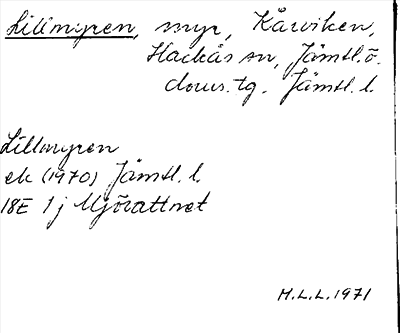 Lillmyren, myr, Kårviken,
Hackås sn, Jämtl. ö.
doms. tg. Jämtl. l.
Lillmyren
ek (1970) Jämtl. l.
18E 1j Mjösattnet
M.L.L. 1971